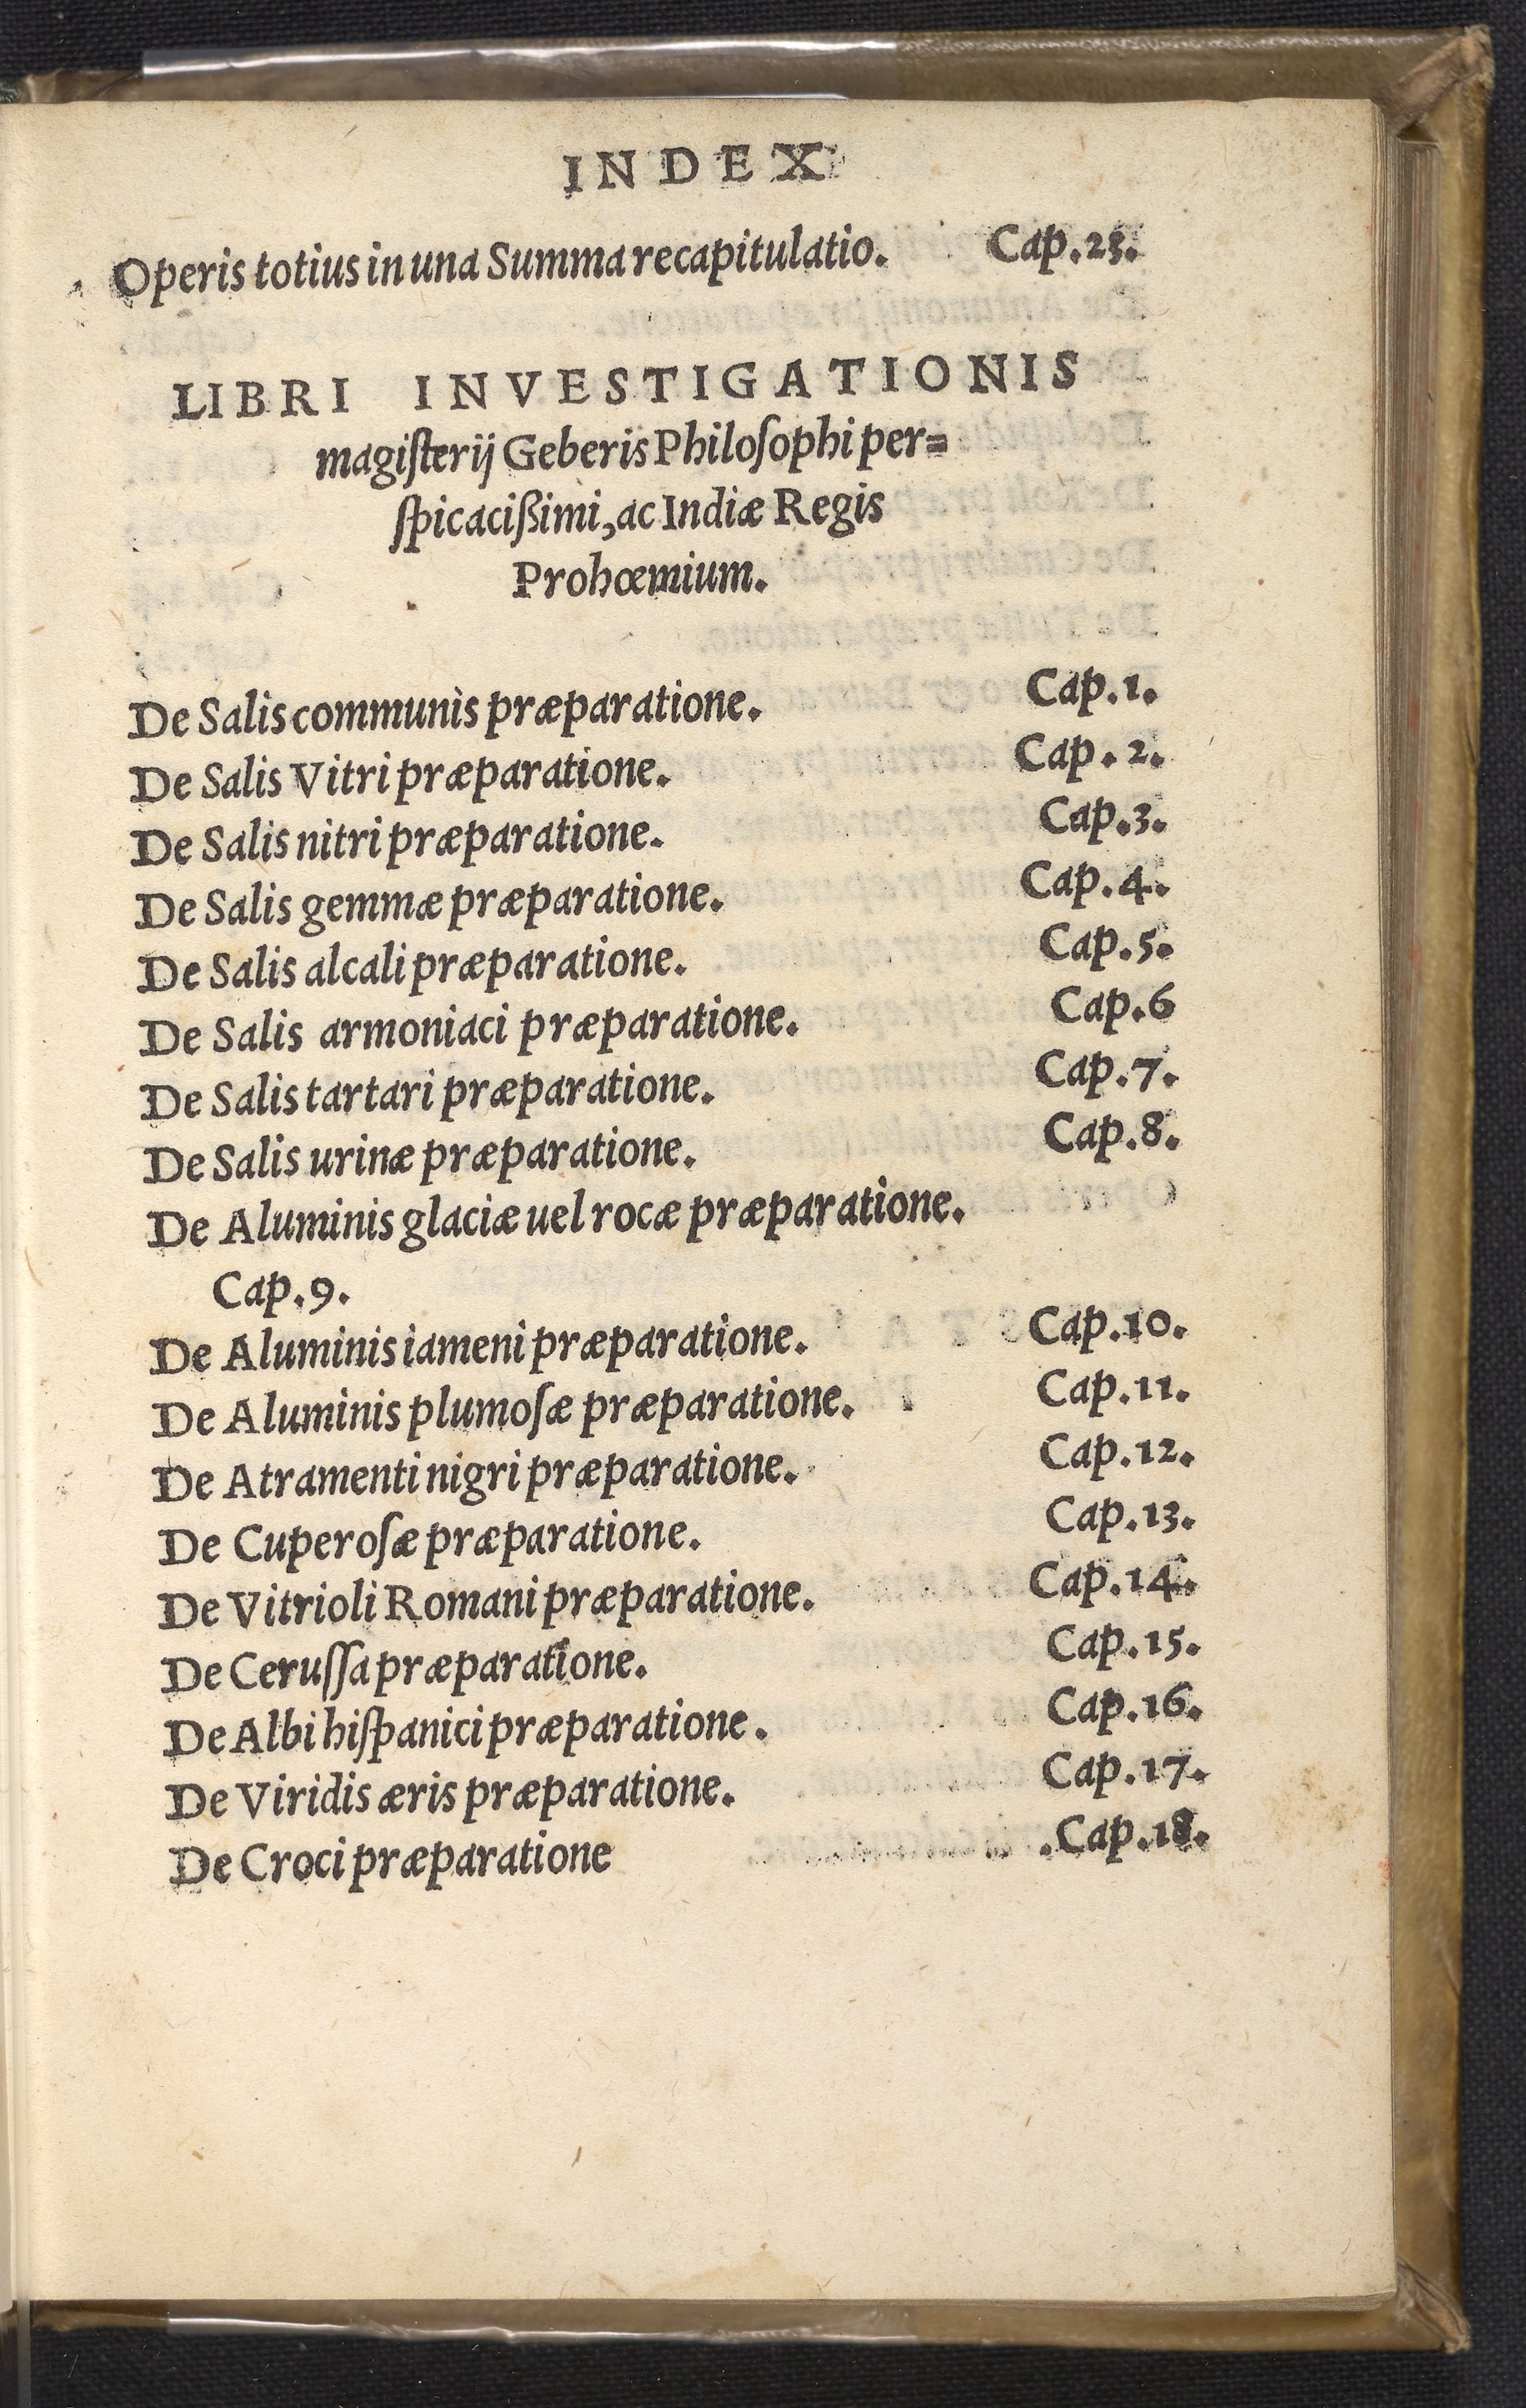 INDEX
Operis totius in una Summa recapitulatio. Cap.25.
LIBRI INVESTIGATIONIS
magiſterij Geberis Philoſophi per=
ſpicacißimi, ac Indiæ Regis
Prohœmium.
De Salis communis præparatione. Cap.1.
De Salis Vitri præparatione. Cap.2.
De Salis nitri præparatione. Cap.3.
De Salis gemmæ præparatione. Cap.4.
De Salis alcali præparatione. Cap.5.
De Salis armoniaci præparatione. Cap.6
De Salis tartari præparatione. Cap.7.
De Salis urinæ præparatione. Cap.8.
De Aluminis glaciæ uel rocæ præparatione.
Cap.9.
De Aluminis iameni præparatione. Cap.10.
De Aluminis plumoſæ præparatione. Cap.11.
De Atramenti nigri præparatione. Cap.12.
De Cuperoſæ præparatione. Cap.13.
De Vitrioli Romani præparatione. Cap.14.
De Ceruſſa præparatione. Cap.15.
De Albi hiſpanici præparatione. Cap.16.
De Viridis æris præparatione. Cap.17.
De Croci præparatione .Cap.18.